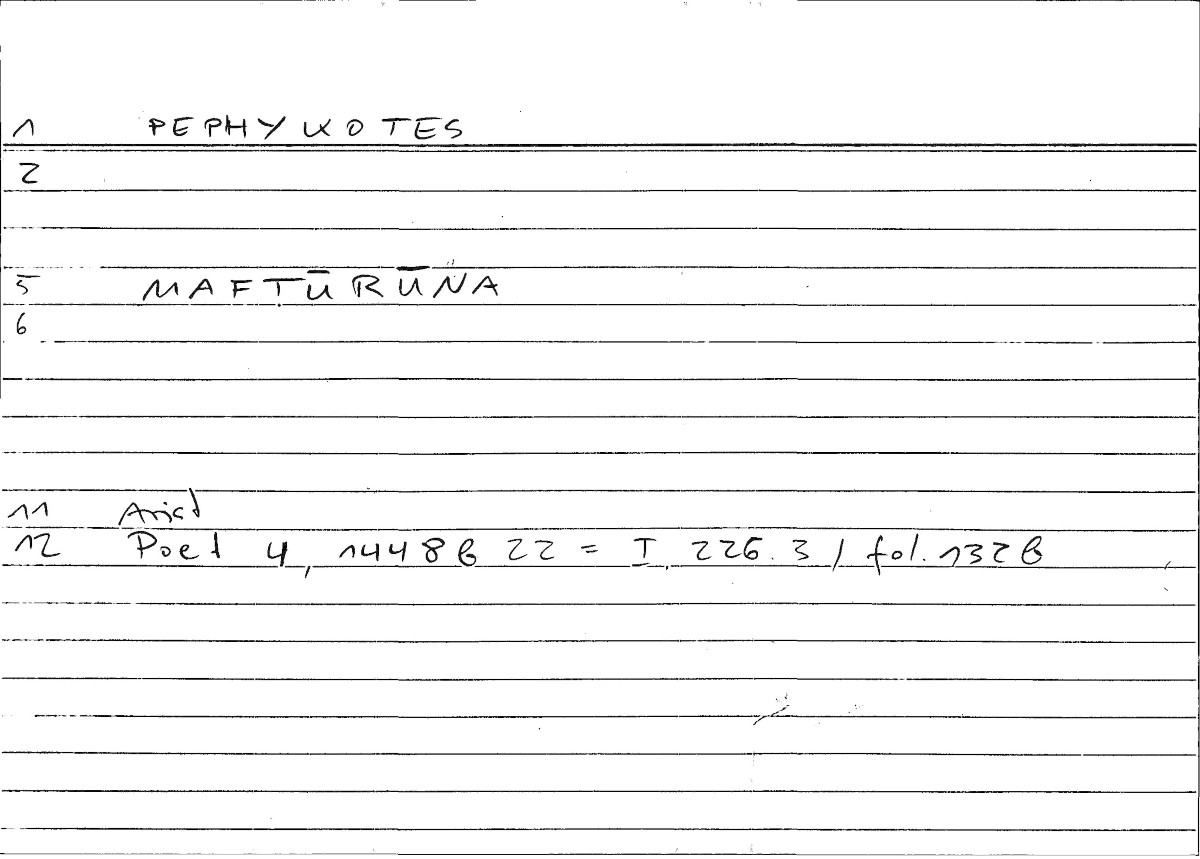 1 PEPHYKOTES
2
5 MAFTŪRŪNA
6
11 Arist
12 Poet 4, 1448b 22 = I, 226.3 / fol. 132b